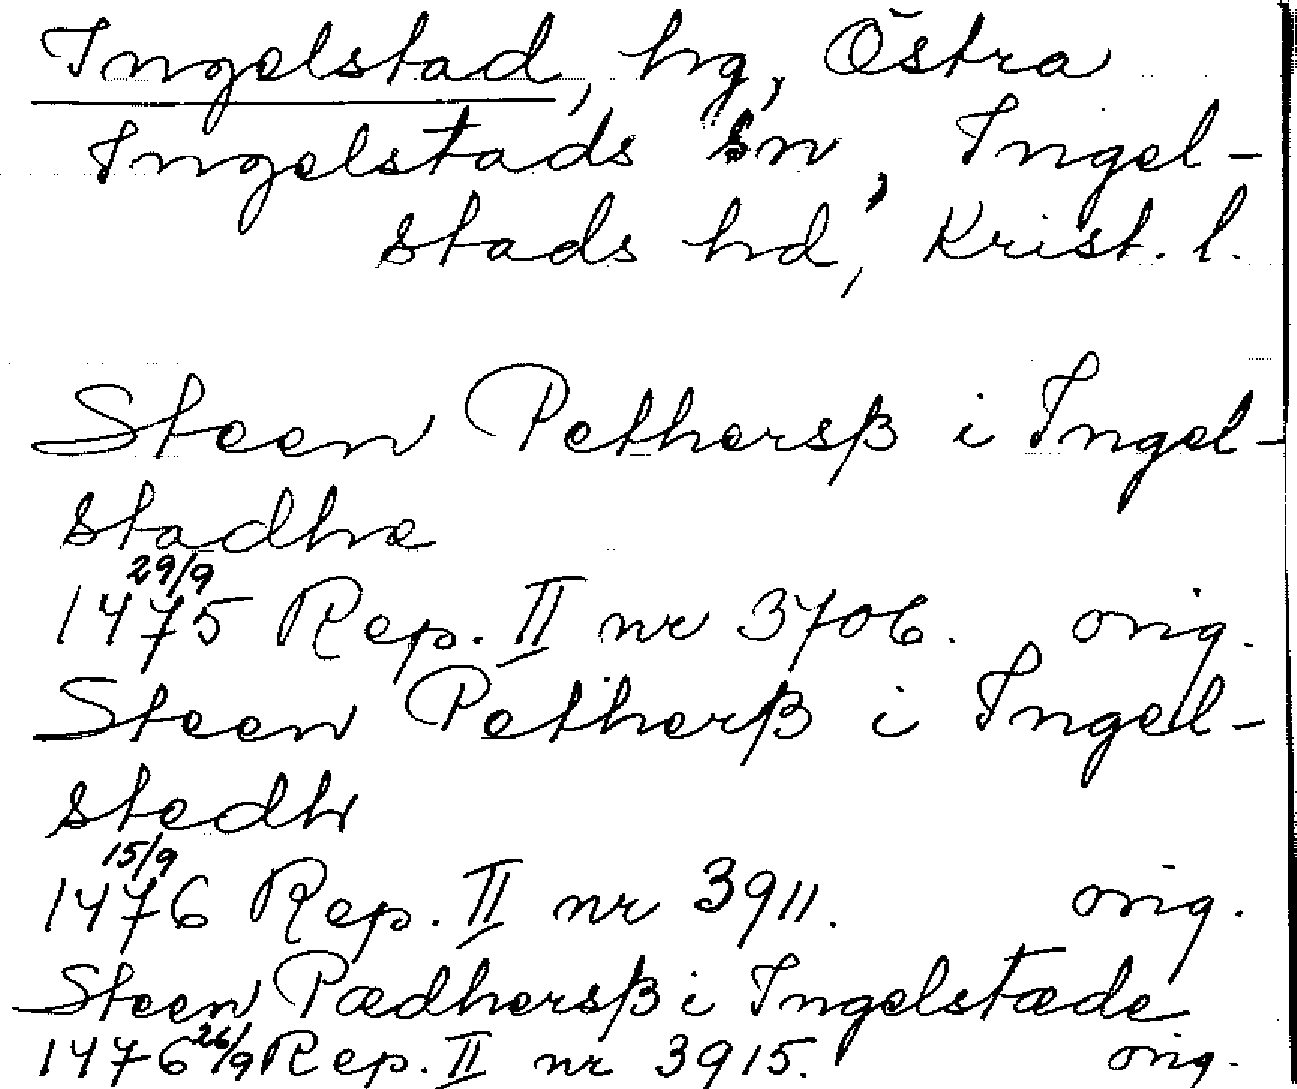 Ingelstad, hg, Östra
Ingelstads sn, Ingel-
stads hd, Krist. l.
Steen Pethersß i Ingel-
stadhe
29/9
1475 Rep. II nr 3706. orig.
Steen Petherß i Ingel-
stedh
15/9
1476 Rep. II nr 3911. orig.
Steen Pædhersß i Ingelstæde
1476 26/9 Rep. II nr 3915. orig.